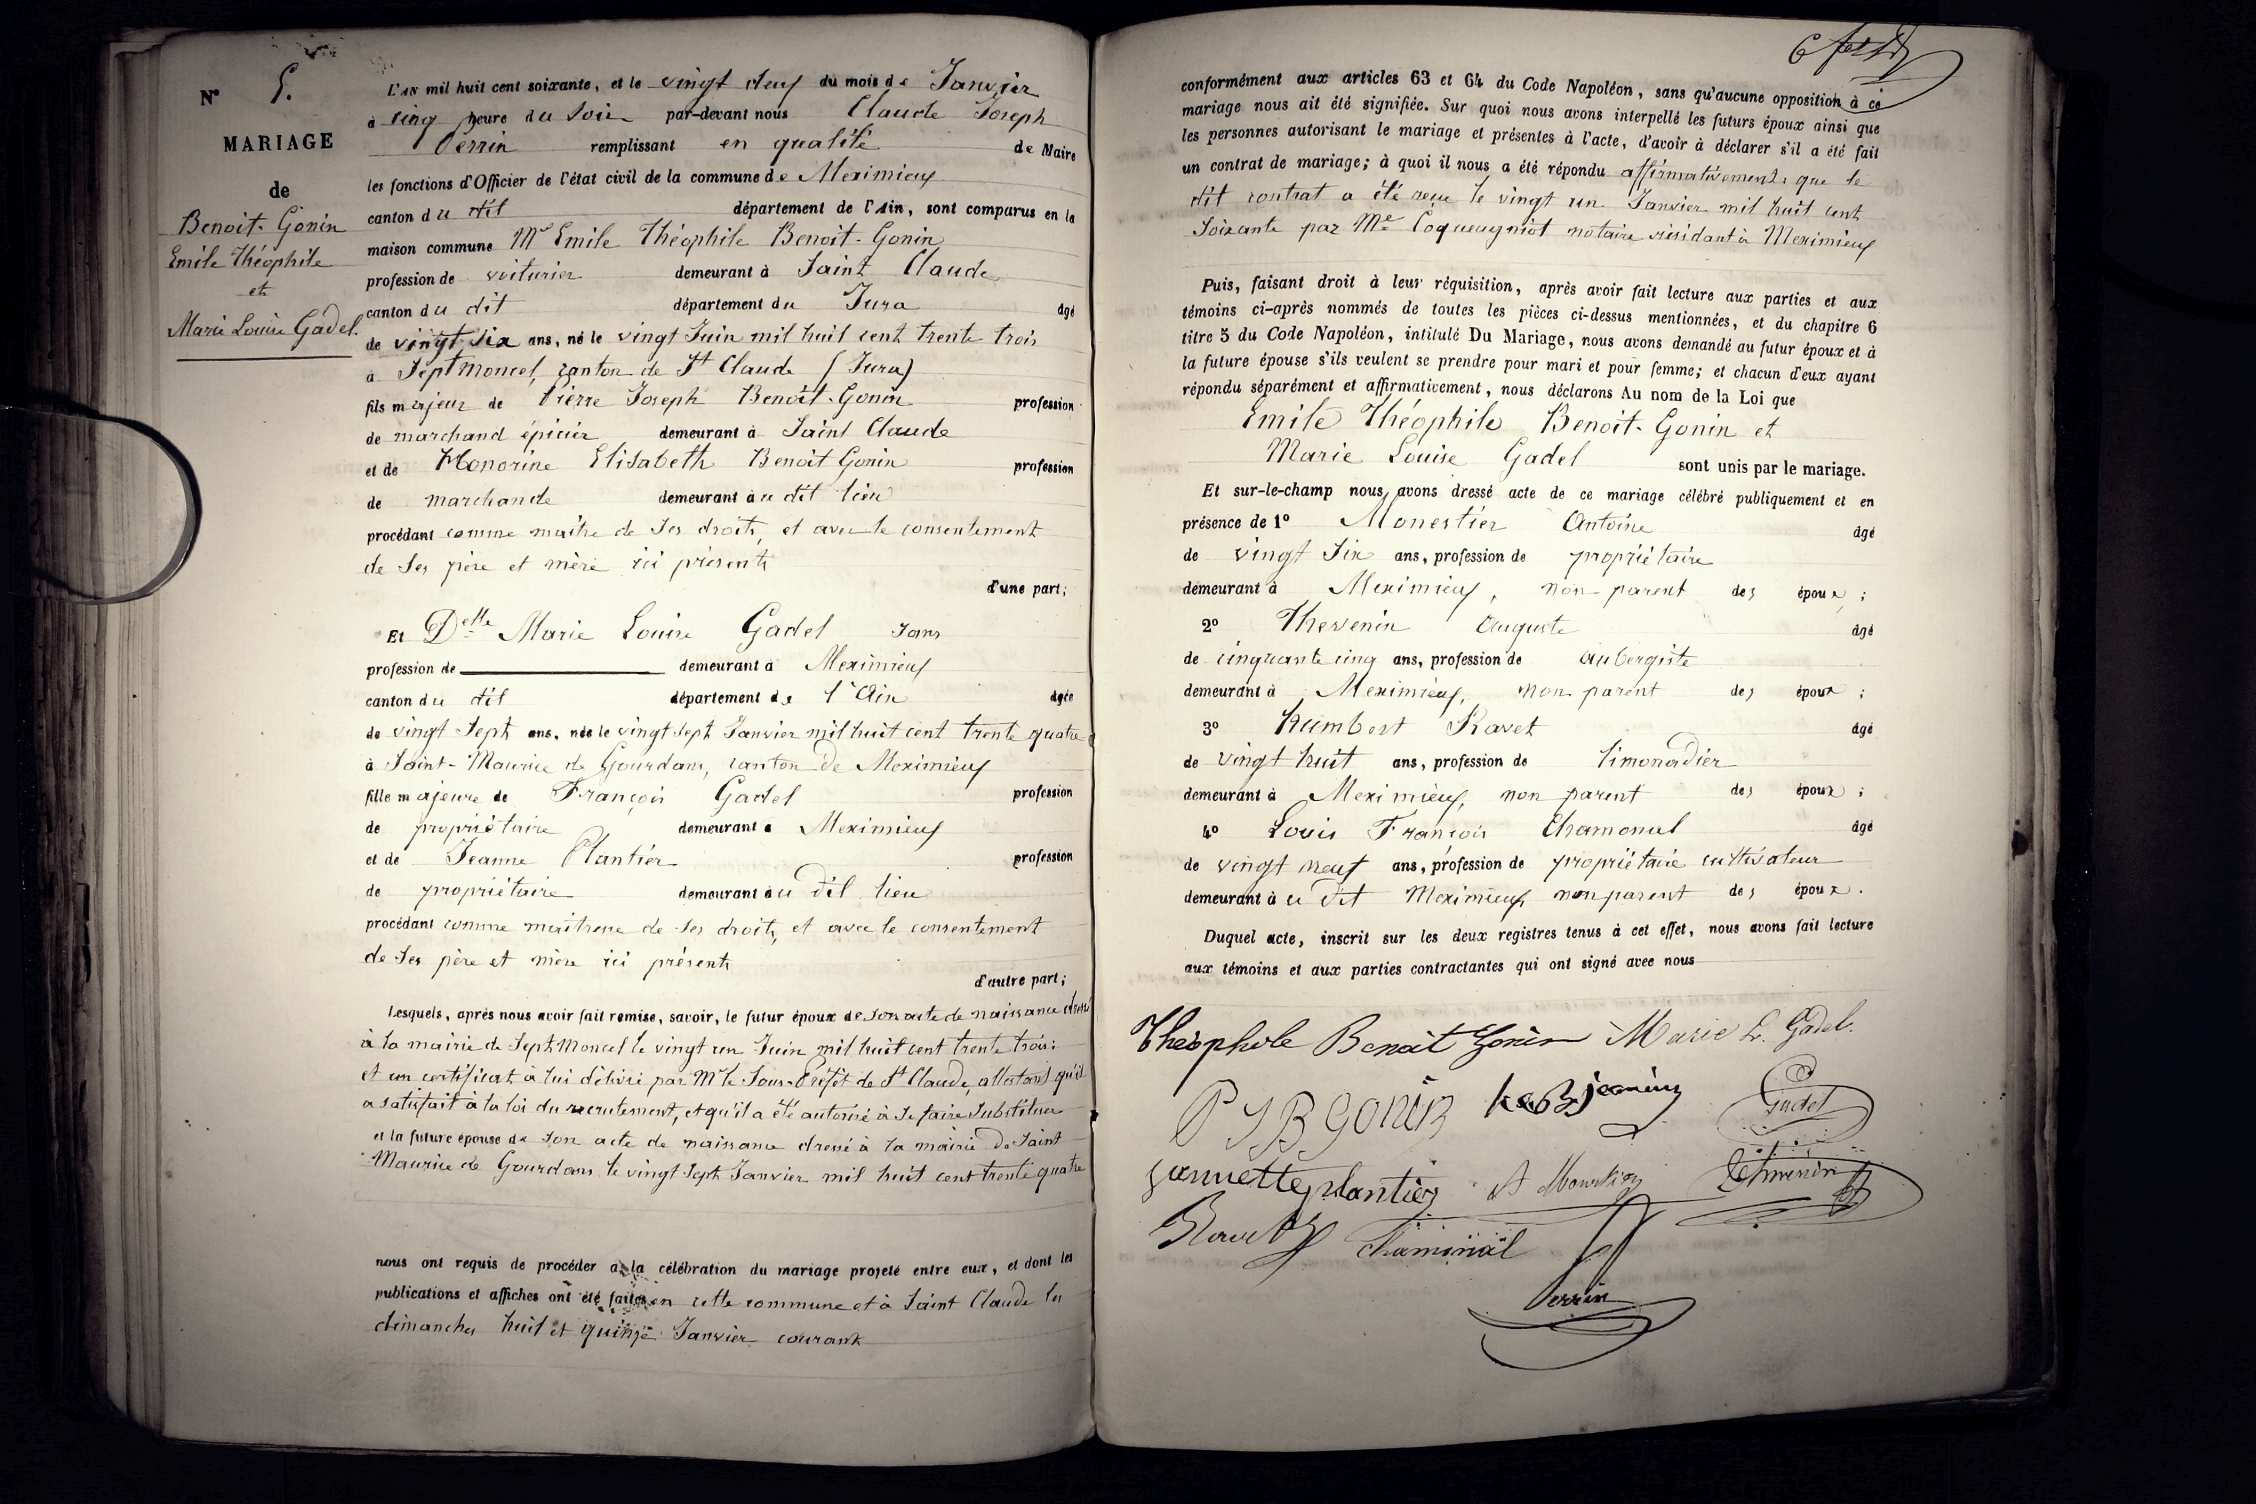 N° 5.
MARIAGE
de
Benoit-Gonin
Emile Théophile
et
Marie Louise Gadel.
L'AN mil huit cent soixante, et le vingt deux du mois de Janvier
à cinq heure du soir par-devant nous Claude Joseph
Perrin remplissant en qualité de Maire
les fonctions d'Officier de l'état civil de la commune de Meximieux
canton du dit département de l'Ain, sont comparus en la
maison commune Mr Emile Théophile Benoit-Gonin
profession de voiturier demeurant à Saint Claude
canton du dit département du Jura âgé
de vingt six ans, né le vingt Juin mil huit cent trente trois
à Septmoncel, canton de St Claude (Jura)
fils majeur de Pierre Joseph Benoit-Gonin profession
de marchand épicier demeurant à Saint Claude
et de Honorine Elisabeth Benoit Gonin profession
de marchande demeurant au dit lieu
procédant comme maître de ses droits, et avec le consentement
de ses père et mère ici présents
d'une part;
Et Delle Marie Louise Gadel sans
profession de demeurant à Meximieux
canton du dit département de l'Ain âgée
de vingt sept ans, née le vingt sept Janvier mil huit cent trente quatre
à Saint-Maurice de Gourdans, canton de Meximieux
fille majeure de François Gadel profession
de propriétaire demeurant à Meximieux
et de Jeanne Plantier profession
de propriétaire demeurant au dit lieu
procédant comme maitresse de ses droits, et avec le consentement
de ses père et mère ici présents
d'autre part;
Lesquels, après nous avoir fait remise, savoir, le futur époux de son acte de naissance dressé
à la mairie de Septmoncel le vingt un Juin mil huit cent trente trois:
et un certificat à lui délivré par Mr le Sous-Préfet de St Claude, attestant qu'il
a satisfait à la loi du recrutement, et qu'il a été autorisé à se faire substituer
et la future épouse de son acte de naissance dressé à la mairie de Saint
Maurice de Gourdans le vingt sept Janvier mil huit cent trente quatre
nous ont requis de procéder à la célébration du mariage projeté entre eux, et dont les
publications et affiches ont été faites en cette commune et à Saint Claude les
dimanches huit et quinze Janvier courant
conformément aux articles 63 et 64 du Code Napoléon, sans qu'aucune opposition à ce
mariage nous ait été signifiée. Sur quoi nous avons interpellé les futurs époux ainsi que
les personnes autorisant le mariage et présentes à l'acte, d'avoir à déclarer s'il a été fait
un contrat de mariage; à quoi il nous a été répondu affirmativement, que le
dit contrat a été reçu le vingt un Janvier mil huit cent
soixante par Me Coqueugniot notaire résidant à Meximieux
Puis, faisant droit à leur réquisition, après avoir fait lecture aux parties et aux
témoins ci-après nommés de toutes les pièces ci-dessus mentionnées, et du chapitre 6
titre 5 du Code Napoléon, intitulé Du Mariage, nous avons demandé au futur époux et à
la future épouse s'ils veulent se prendre pour mari et pour femme; et chacun d'eux ayant
répondu séparément et affirmativement, nous déclarons Au nom de la Loi que
Emile Théophile Benoit-Gonin et
Marie Louise Gadel sont unis par le mariage.
Et sur-le-champ nous avons dressé acte de ce mariage célébré publiquement et en
présence de 1° Monestier Antoine âgé
de vingt six ans, profession de propriétaire
demeurant à Meximieux, non parent des époux;
2° Thevenin Auguste âgé
de cinquante cinq ans, profession de aubergiste
demeurant à Meximieux, non parent des époux;
3° Humbert Ravet âgé
de vingt huit ans, profession de limonadier
demeurant à Meximieux, non parent des époux;
4° Louis François Chamonal âgé
de vingt neuf ans, profession de propriétaire cultivateur
demeurant à u dit Meximieux, non parent des époux.
Duquel acte, inscrit sur les deux registres tenus à cet effet, nous avons fait lecture
aux témoins et aux parties contractantes qui ont signé avec nous
Théophile Benoit Gonin Marie L. Gadel.
P J B Gonin Gadel
jannette plantier
Ravet Chaminal
Perrin